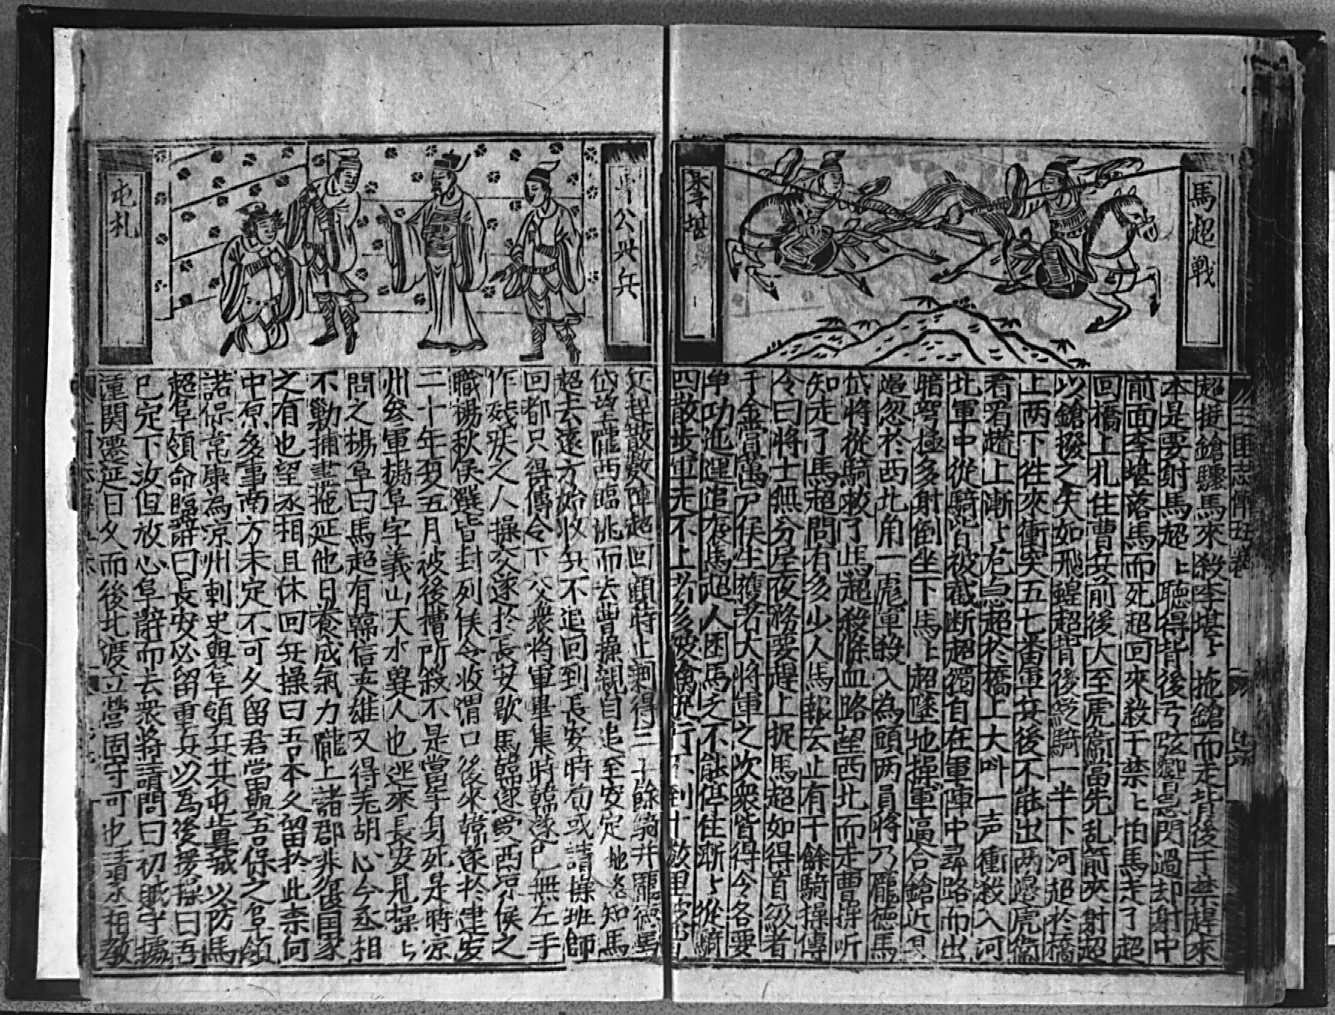 馬超戰
李堪
超挺鎗驟馬來殺李堪〻拖鎗而走背後于禁趕來
本是要射馬超〻聽得背後弓弦響急閃過却射中
前面李堪落馬而死超回來殺于禁〻怕馬走了超
回橋上扎住曹兵前後大至虎衛當先乱箭夾射超
以鎗撥之矢如飛蝗超背後從騎一半下河超於橋
上两下徃來衝突五七番軍兵後不能出两邊虎衛
看看趲上漸〻危急超於橋上大呌一声衝殺入河
北軍中從騎皆被截断超獨自在軍陣中尋路而出
暗弩極多射倒坐下馬〻超墜地操軍逼合鎗近
逼忽於西北角一彪軍殺入為頭两員將乃龐德馬
岱將從騎救了馬超殺條血路望西北而走曹操听
知走了馬超問有多少人馬報云止有千餘騎操傳
令曰將士無分星夜務要趕上捉馬超如得首級者
千金賞萬户侯生獲者大將軍之次衆皆得令各要
爭功迤邐追襲馬超人困馬乏不能停住漸〻從騎
四散步軍走不上者多被擒捉行不到十數里
兵趕散數陣超回顧時止剩得三十餘騎并龐德馬
岱望隴西臨洮而去曹操親自追至安定地名知馬
超去遠方始收兵不追回到長安時荀或請操班師
回都只得傳令下父衆將軍畢集時韓遂已無左手
作殘疾之人操交遂於長安歇馬韓遂受西凉侯之
職楊秋侯選皆封列侯令收渭口後來韓遂於建安
二十年夏五月被後槽所殺不是當手身死是時凉
州叅軍楊阜字義山天水兾人也逃來長安見操〻
問之楊阜曰馬超有韓信英雄又得羌胡心今丞相
不勦捕盡拖延他日養成氣力隴上諸郡非復国家
之有也望丞相且休回兵操曰吾本久留扵此柰何
中原多事南方未定不可久留君當與吾保之阜領
諾保韋康為凉州刺史與阜領兵共屯兾城以防馬
超阜領命臨辭曰長安必留重兵以為後援操曰吾
已定下汝但放心阜辭而去衆將請問曰初賊守據
潼關遷延日久而後北渡立營固守可也請丞相教
公兴兵
屯札